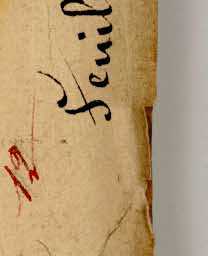 Feuil
12